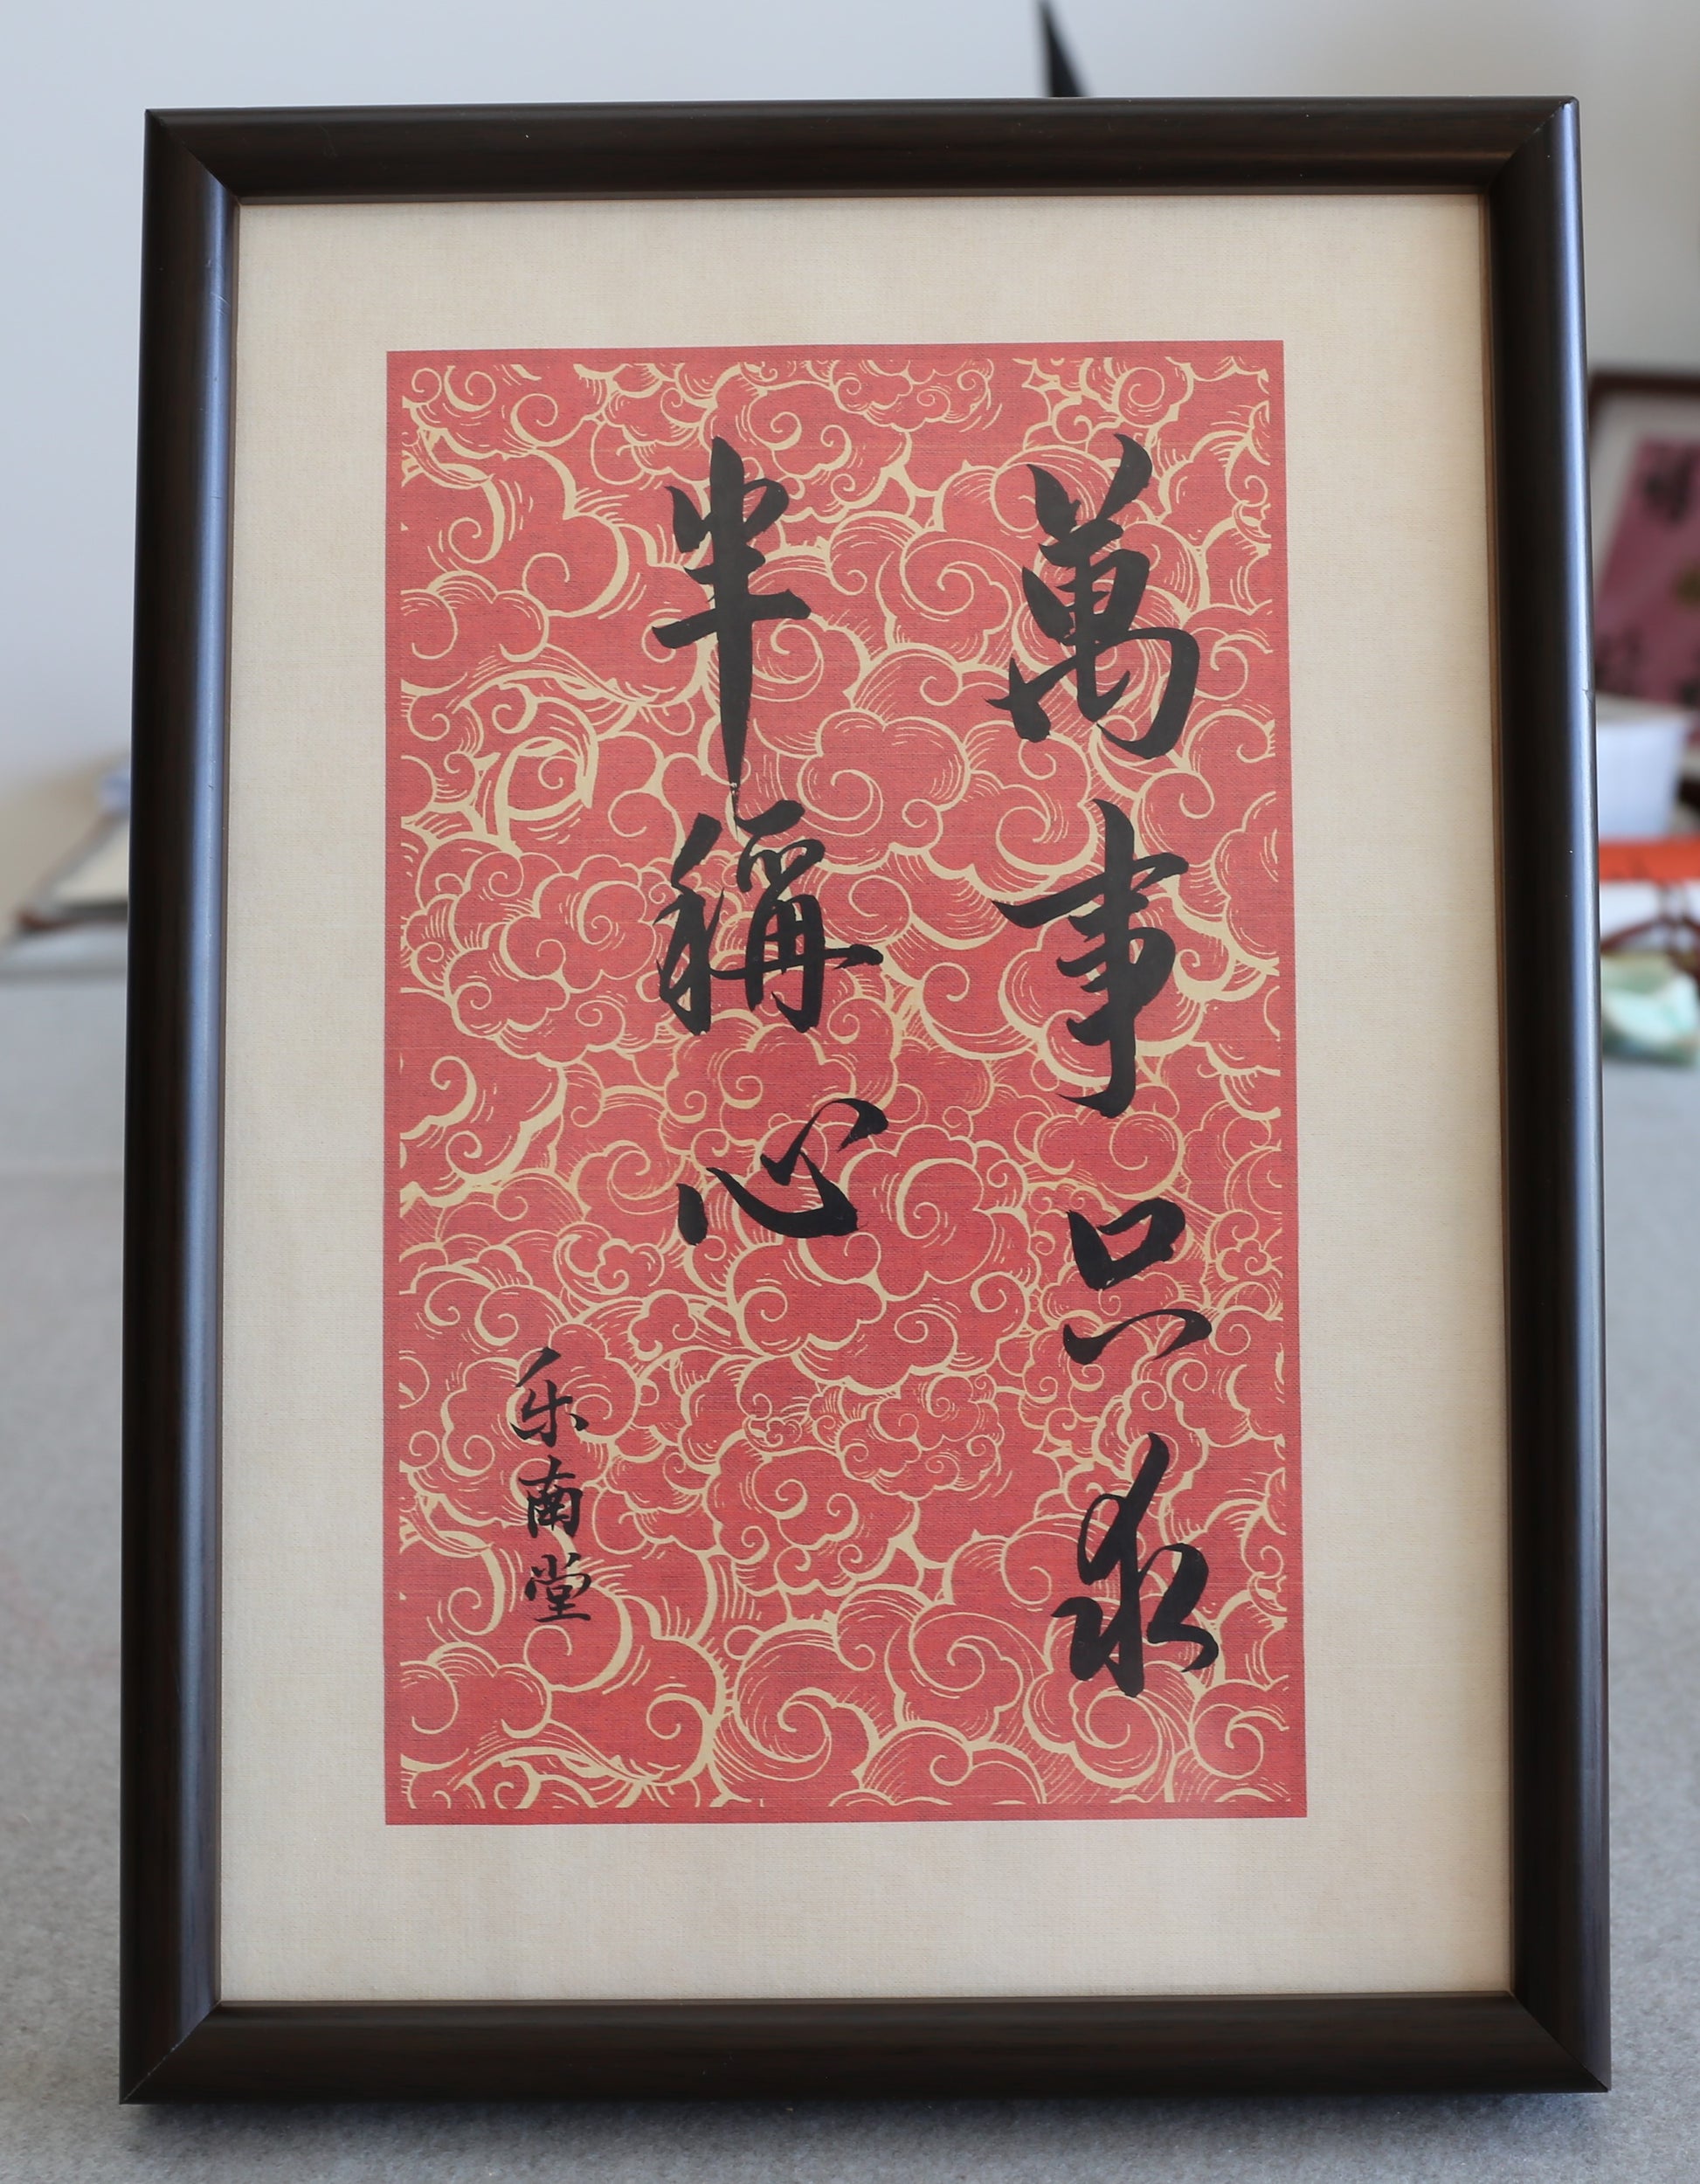 萬事只求
半稱心
乐南堂